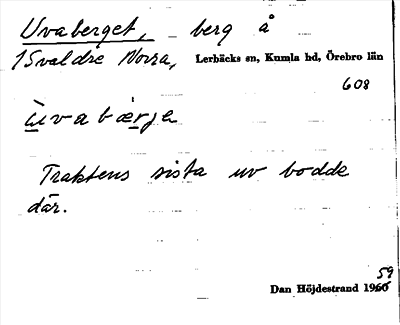 Uvaberget, berg å
1 Svaldre Norra, Lerbäcks sn, Kumla hd, Örebro län
608
Traktens sista uv bodde
där.
59
Dan Höjdestrand 1960